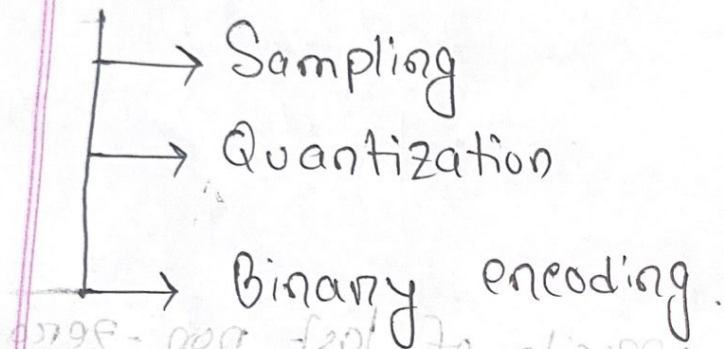 Sampling
Quantization
Binary encoding.